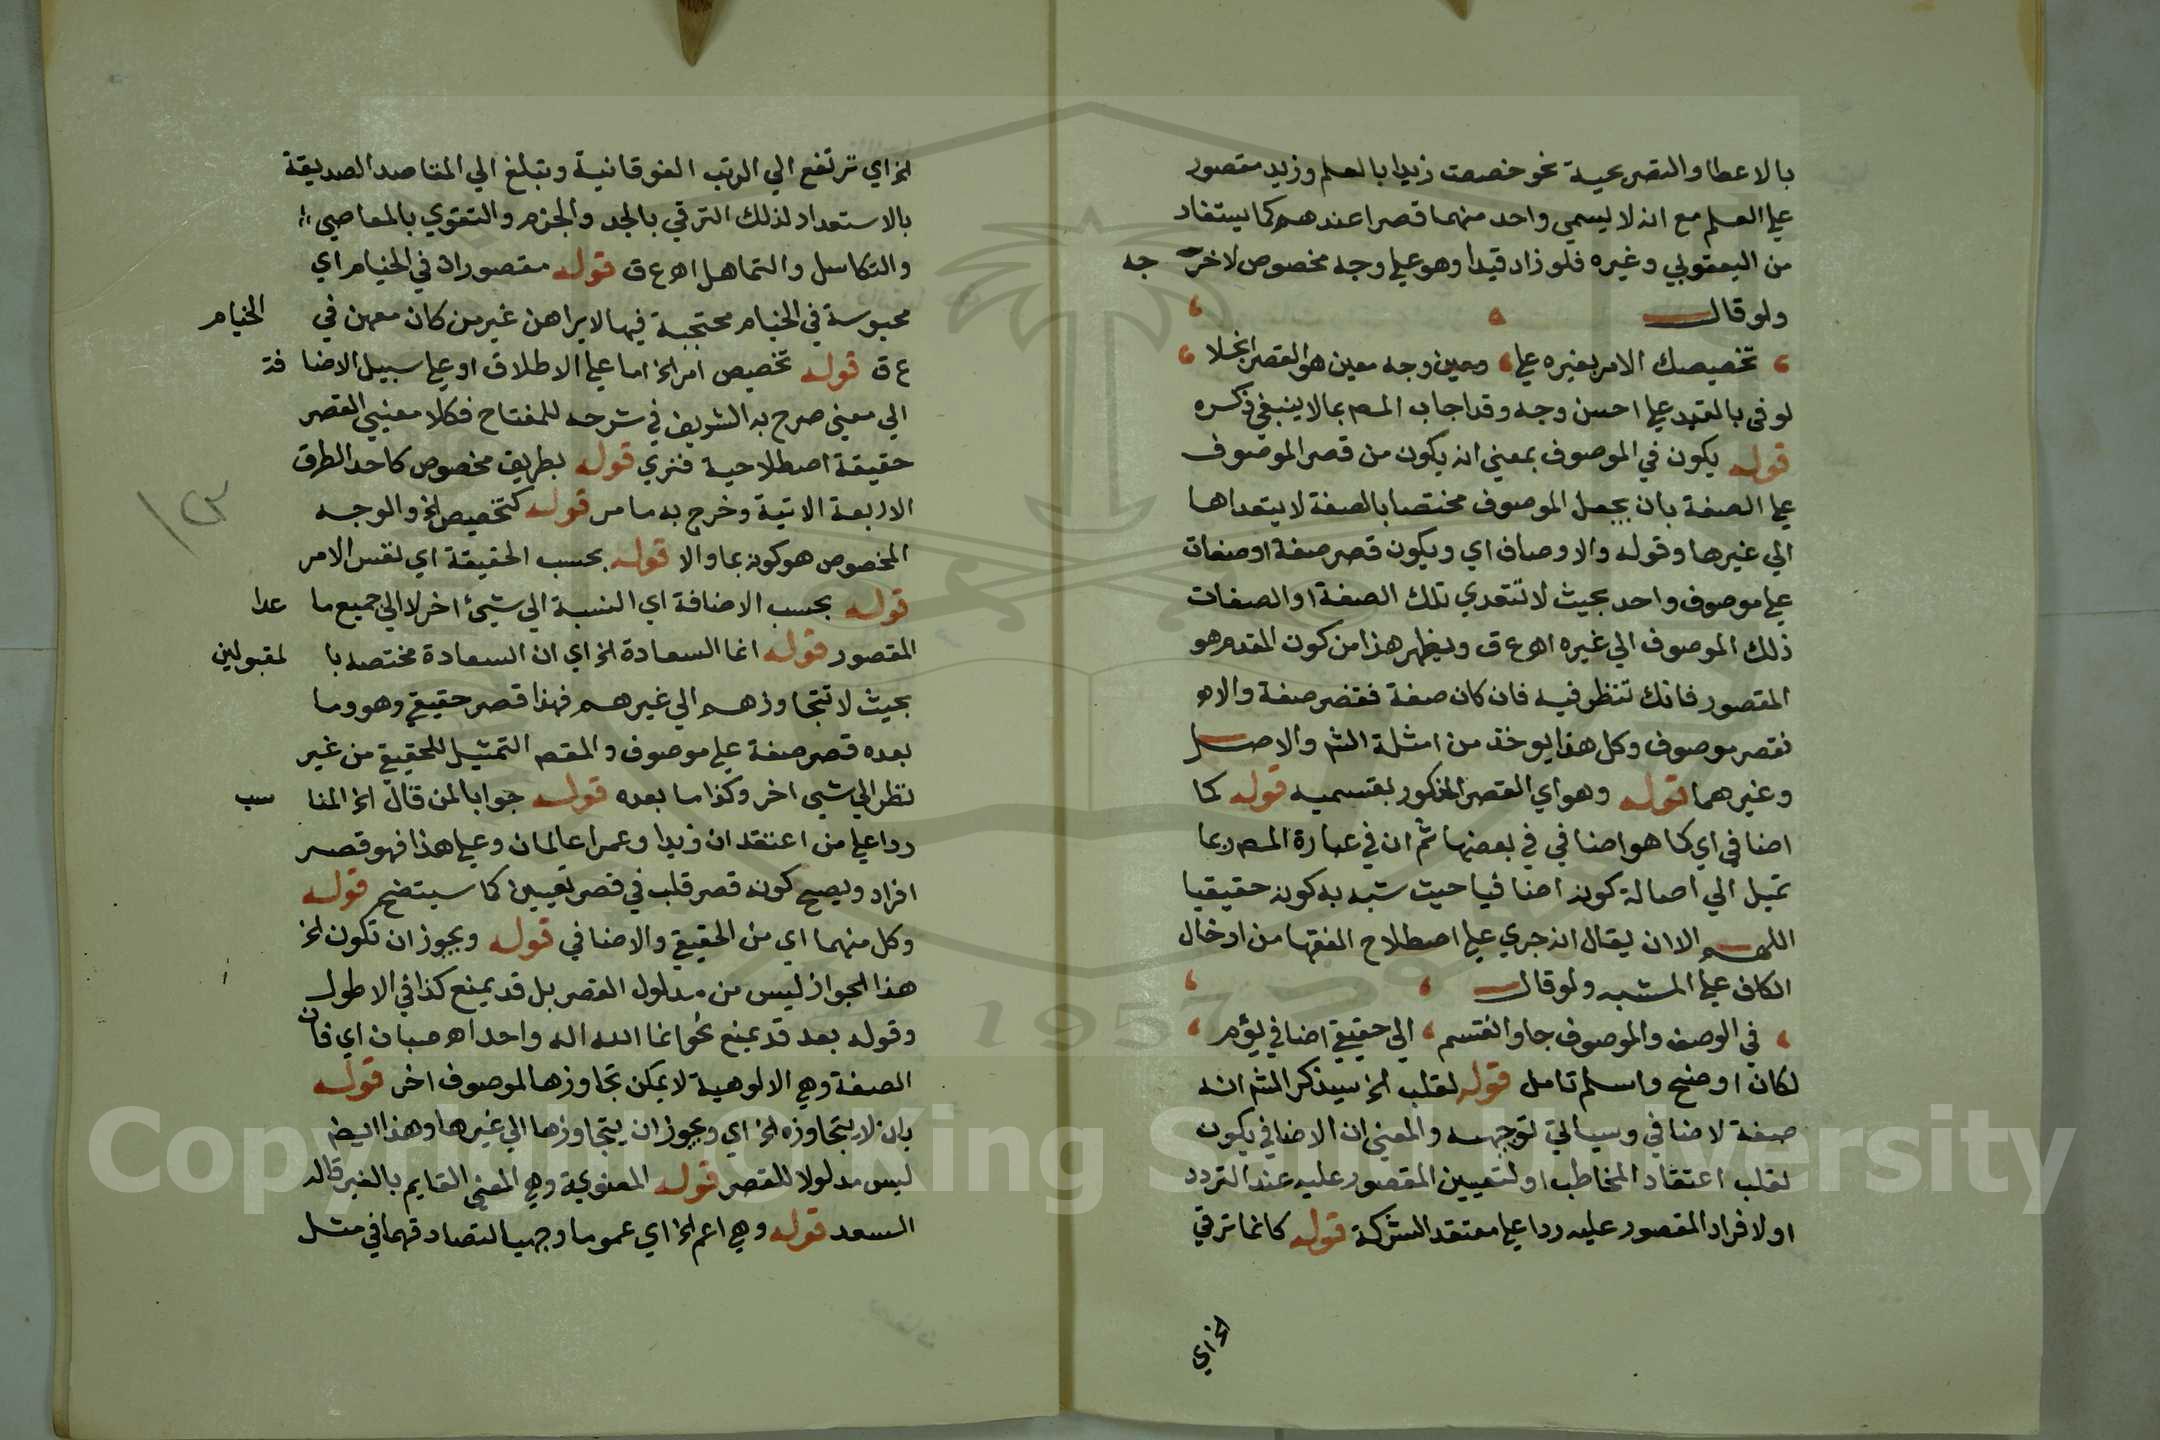 بالاعطا والتصريحية نحو خصصت زيدا بالعلم وزيد مقصور
علي العلم مع انه لا يسمي واحد منهما قصرا عندهم كما يستفاد
من اليعقوبي وغيره فلو زاد قيدا وهو علي وجه مخصوص لاخرجه
ولو قال
تخصيصك الامر بغيره علي ومعين وجه معين هو القصر انجلا
لوفي بالقيد علي احسن وجه وقد اجاب المص بما لا ينبغي ذكره
قوله يكون في الموصوف بمعني انه يكون من قصر الموصوف
علي الصفة بان يجعل الموصوف مختصا بالصفة لا يتعداها
الي غيرها وقوله والاوصاف اي ويكون قصر صفة او صفات
علي موصوف واحد بحيث لا تتعدي تلك الصفة او الصفات
ذلك الموصوف الي غيره اه ع ق ويظهر هذا من كون المقدم هو
المقصور فانك تنظر فيه فان كان صفة فقصر صفة والا
فقصر موصوف وكل هذا يوخذ من امثلة الش والاصل
وغيرهما قوله وهو اي القصر المذكور بقسميه قوله كما
اضافي اي كما هو اضافي في بعضها ثم ان في عبارة المص ربما
تميل الي اصالة كونه اضافيا حيث شبه به كونه حقيقيا
اللهم الا ان يقال انه جري علي اصطلاح الفقها من ادخال
الكاف علي المشبه ولو قال
في الوصف والموصوف جا وانقسم الي حقيقي اضافي يؤم
لكان اوضح واسلم تامل قوله لقلب الخ سيذكر الش انه
صفة لاضافي وسيأتي توجيهه والمعني ان الاضافي يكون
لقلب اعتقاد المخاطب او لتعيين المقصور عليه عند التردد
او لافراد المقصور عليه ردا علي معتقد الشركة قوله كانما ترقي
الخ اي
الخ اي ترتفع الي الرتب الفوقانية وتبلغ الي المقاصد الصديقة
بالاستعداد لذلك الترقي بالجد والجزم والتقوي بالمعاصي
والتكاسل والتماهل اه ع ق قوله مقصورات في الخيام اي
محبوسة في الخيام محتجبة فيها لا يراهن غير من كان معهن في الخيام
ع ق قوله تخصيص امر الخ اما علي الاطلاق او علي سبيل الاضافة
الي معني صرح به الشريف في شرحه للمفتاح فكلا معنيي القصر
حقيقة اصطلاحية فنري قوله بطريق مخصوص كاحد الطرق
الاربعة الاتية وخرج به ما مر قوله كتخصيص الخ والوجه
المخصوص هو كونه بما والا قوله بحسب الحقيقة اي نفس الامر
قوله بحسب الاضافة اي النسبة الي شيئ اخر لا الي جميع ما عدا
المقصور قوله انما السعادة الخ اي ان السعادة مختصه بالمقبولين
بحيث لا تتجاوزهم الي غيرهم فهذا قصر حقيقي وهو وما
بعده قصر صفة علي موصوف والمقص التمثيل للحقيقي من غير
نظر الي شي اخر وكذا ما بعده قوله جوابا لمن قال الخ المناسب
ردا علي من اعتقد ان زيدا وعمرا عالمان وعلي هذا فهو قصر
افراد ويصح كونه قصر قلب في قصر تعيين كما سيتضح قوله
وكل منهما اي من الحقيقي والاضافي قوله ويجوز ان تكون الخ
هذا الجواز ليس من مدلول القصر بل قد يمنع كذا في الاطول
وقوله بعد قد يمنع نحو انما الله اله واحد اه صبان اي فان
الصفة وهي الالوهية لا يمكن تجاوزها لموصوف اخر قوله
بان لا يتجاوزه الخ اي ويجوز ان يتجاوزها الي غيرها وهذا ايض
ليس مدلولا للقصر قوله المعنوية وهي المعني القايم بالغير قاله
السعد قوله وهي اعم الخ اي عموما وجهيا لتصادقهما في مثل
Copyright © King Saud University
1957